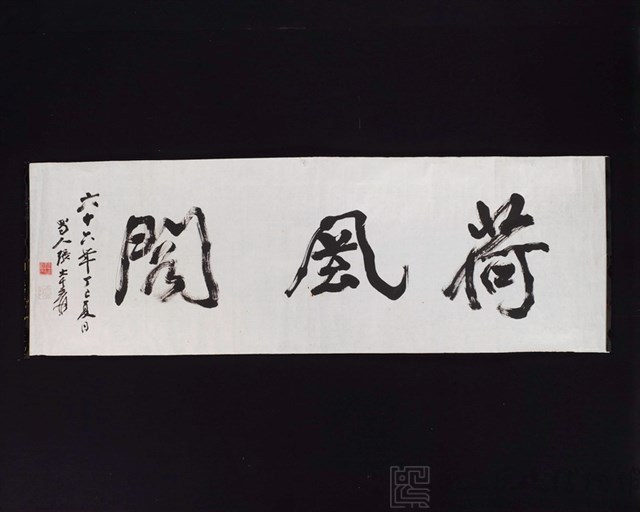 荷風閣
六十六年丁巳夏日
蜀人張大千爰